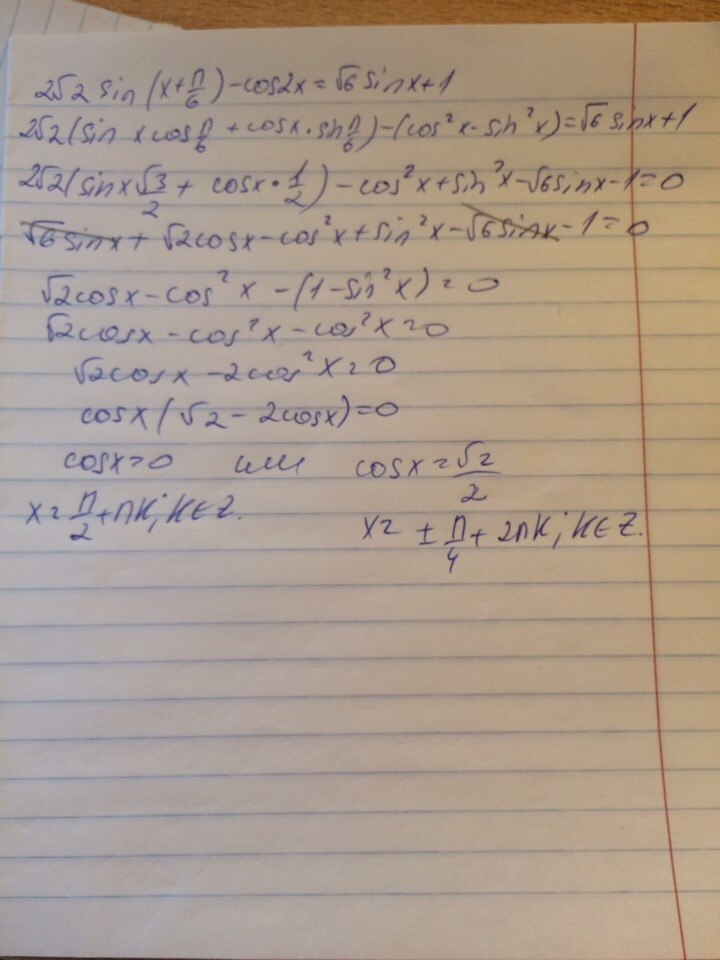 2√2 sin(x+π/6)-cos2x=√6 sinx+1
2√2(sin x cos π/6 + cosx·sin π/6)-(cos²x-sin²x)=√6 sinx+1
2√2(sinx √3/2 + cosx·1/2)-cos²x+sin²x-√6sinx-1=0
√6sinx+√2cosx-cos²x+sin²x-√6sinx-1=0
√2cosx-cos²x-(1-sin²x)=0
√2cosx-cos²x-cos²x=0
√2cosx-2cos²x=0
cosx(√2-2cosx)=0
cosx=0 или cosx=√2/2
x=π/2+πk; k∈Z. x=±π/4+2πk; k∈Z.